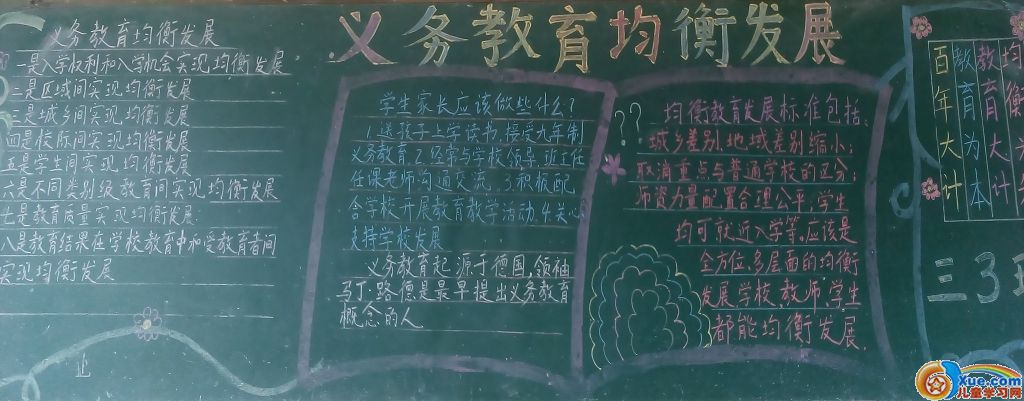 义务教育均衡发展
义务教育均衡发展
一是入学权利和入学机会实现均衡发展
二是区域间实现均衡发展
三是城乡间实现均衡发展
四是校际间实现均衡发展
五是学生间实现均衡发展
六是不同类别级教育间实现均衡发展
七是教育质量实现均衡发展.
八是教育结果在学校教育中和受教育者间
实现均衡发展
学生家长应该做些什么?
1.送孩子上学读书,接受九年制
义务教育.2.经常与学校领导、班主任
任课老师沟通交流.3.积极配
合学校开展教育教学活动.4.关心
支持学校发展
义务教育起源于德国,领袖
马丁.路德是最早提出义务教育
概念的人
??
均衡教育发展标准包括:
城乡差别、地域差别缩小;
取消重点与普通学校的区分;
师资力量配置合理公平,学生
均可就近入学等.应该是
全方位、多层面的均衡
发展,学校、教师、学生
都能均衡发展.
百年大计
教育为本
教育大计
均衡为
三3班
xue.com
儿童学习网